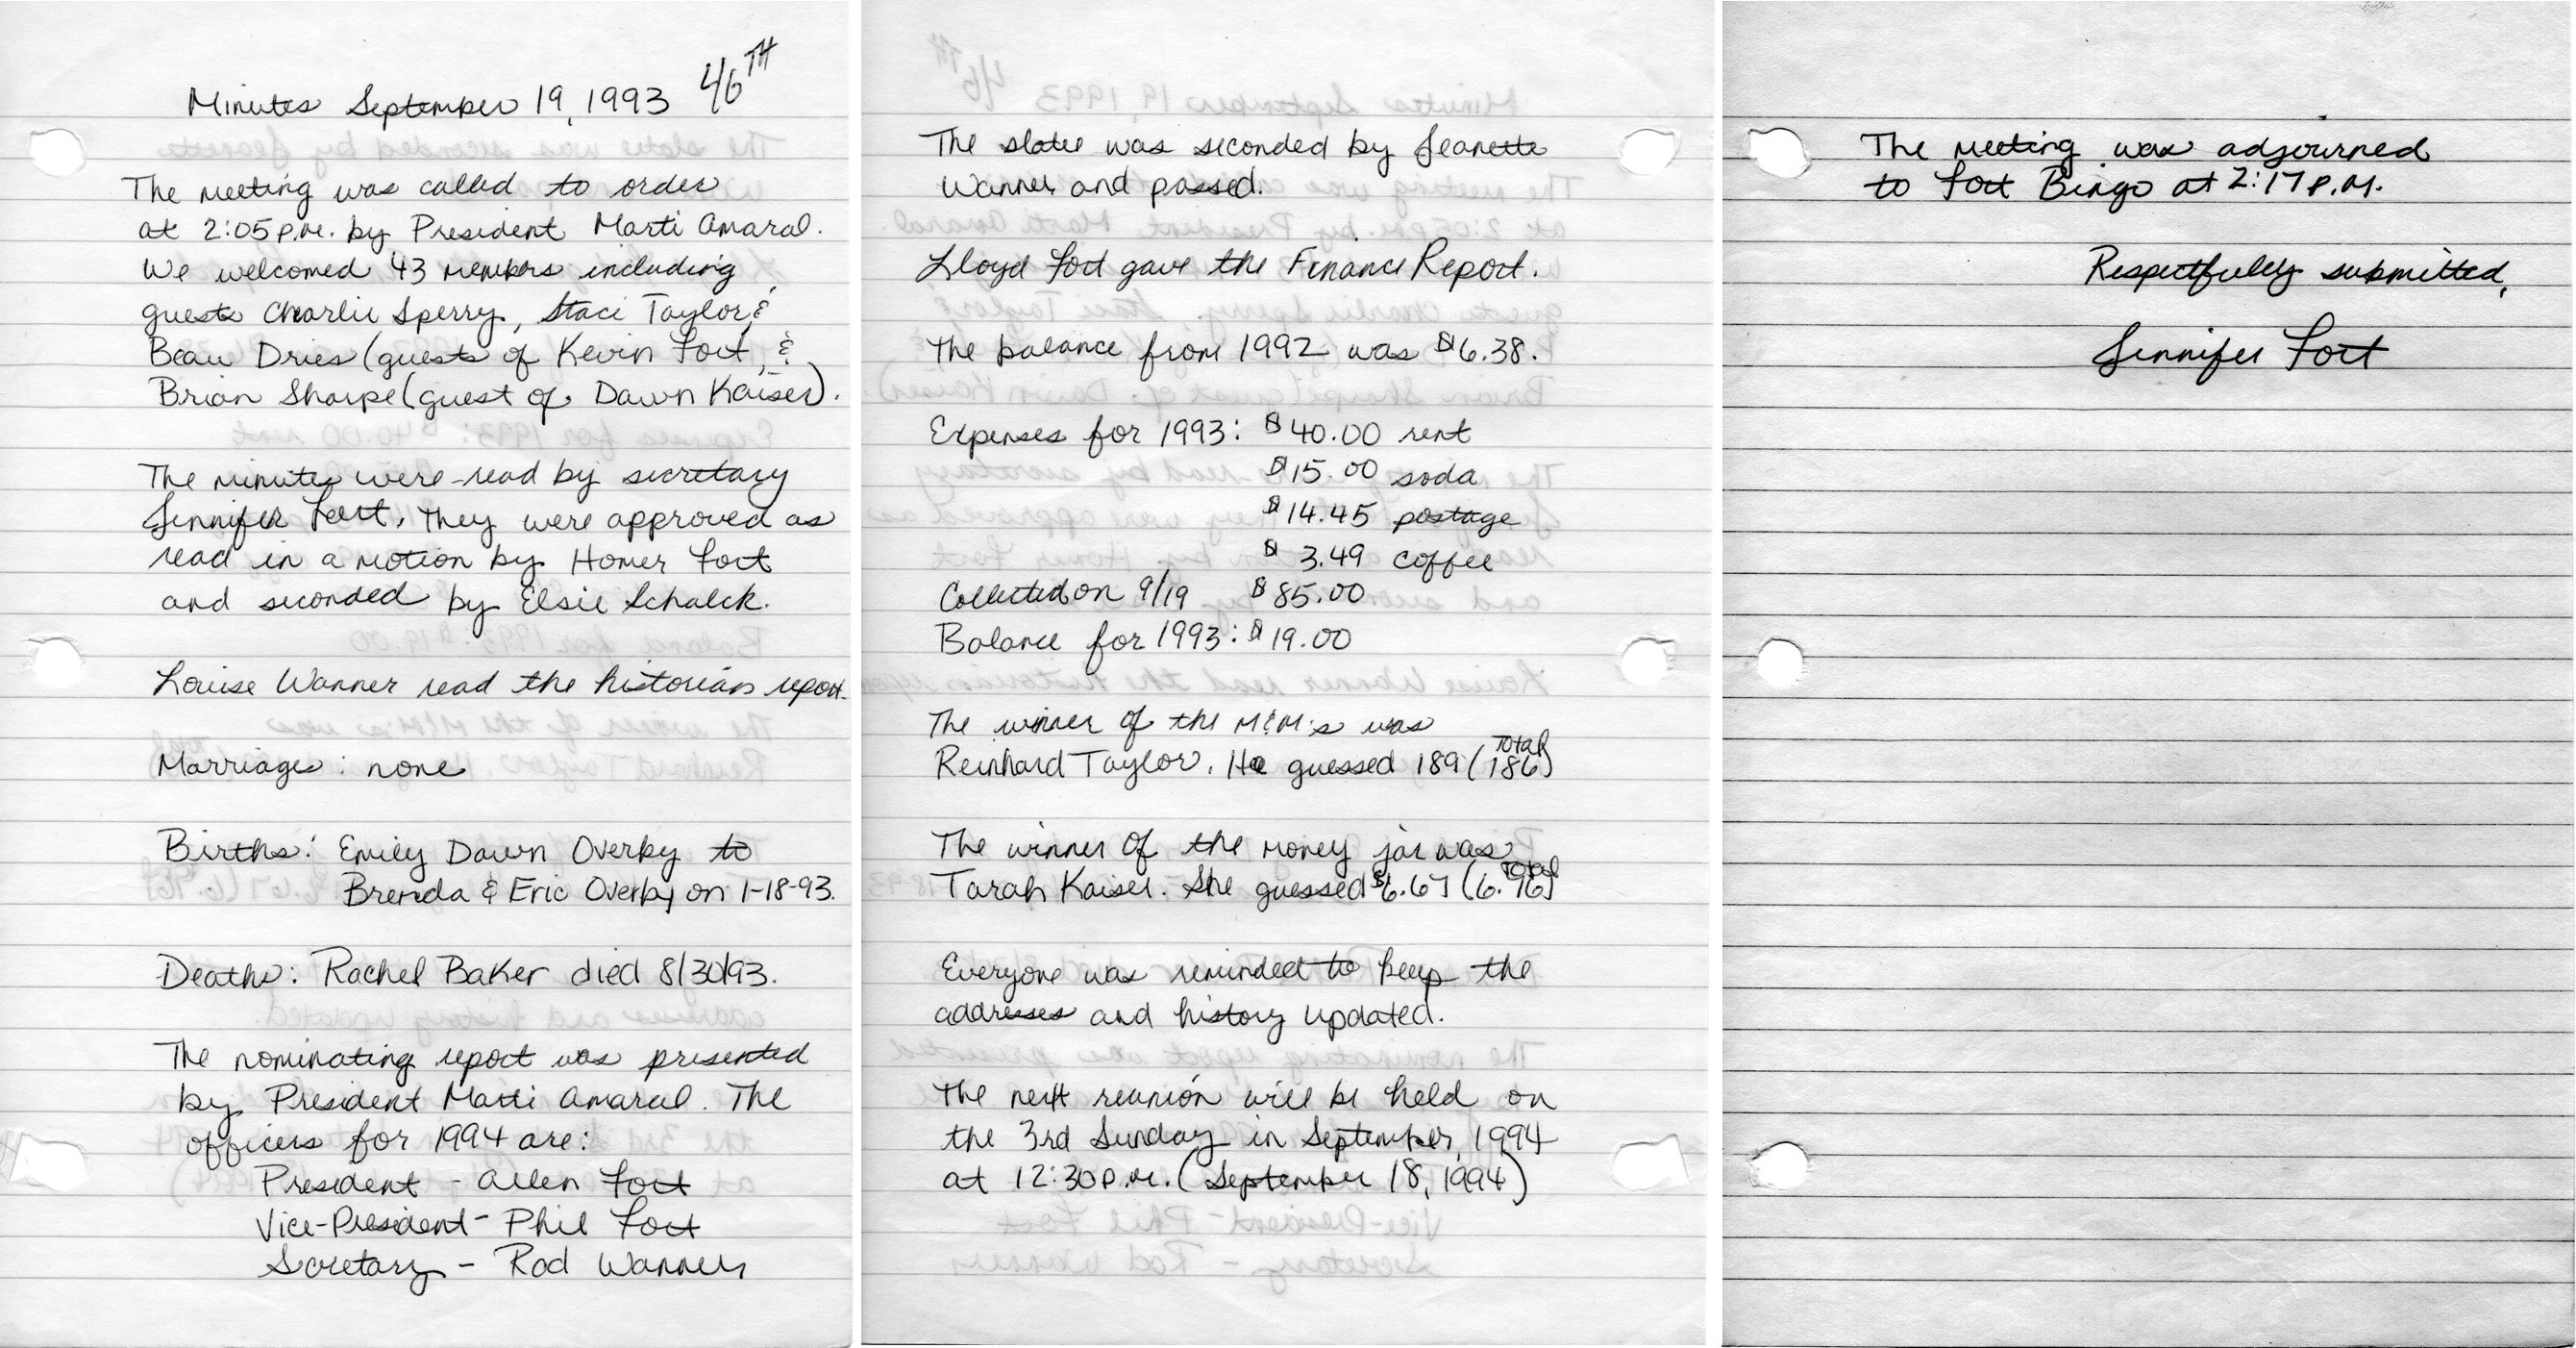 Minutes September 19, 1993 46TH
The meeting was called to order
at 2:05 p.m. by President Marti Amaral.
We welcomed 43 members including
guests Charlie Sperry, Staci Taylor, &
Beau Dries (guests of Kevin Fort, &
Brian Sharpe (guest of Dawn Kaiser).
The minutes were read by secretary
Jennifer Fort. They were approved as
read in a motion by Homer Fort
and seconded by Elsie Schalck.
Louise Wanner read the historian report.
Marriages: none
Births: Emily Dawn Overby to
Brenda & Eric Overby on 1-18-93.
Deaths: Rachel Baker died 8/30/93.
The nominating report was presented
by President Marti Amaral. The
officers for 1994 are:
President - Allen Fort
Vice-President - Phil Fort
Secretary - Rod Wanner
The slate was seconded by Jeanette
Wanner and passed.
Lloyd Fort gave the Finance Report.
The balance from 1992 was $6.38.
Expenses for 1993: $40.00 rent
$15.00 soda
$14.45 postage
$ 3.49 coffee
Collected on 9/19 $85.00
Balance for 1993: $19.00
The winner of the M&M's was
Reinhard Taylor. He guessed 189 (Total 186)
The winner of the money jar was
Tarah Kaiser. She guessed $6.67 (Total 6.96)
Everyone was reminded to keep the
addresses and history updated.
The next reunion will be held on
the 3rd Sunday in September, 1994
at 12:30 p.m. (September 18, 1994)
The meeting was adjourned
to Fort Bingo at 2:17 P.M.
Respectfully submitted,
Jennifer Fort